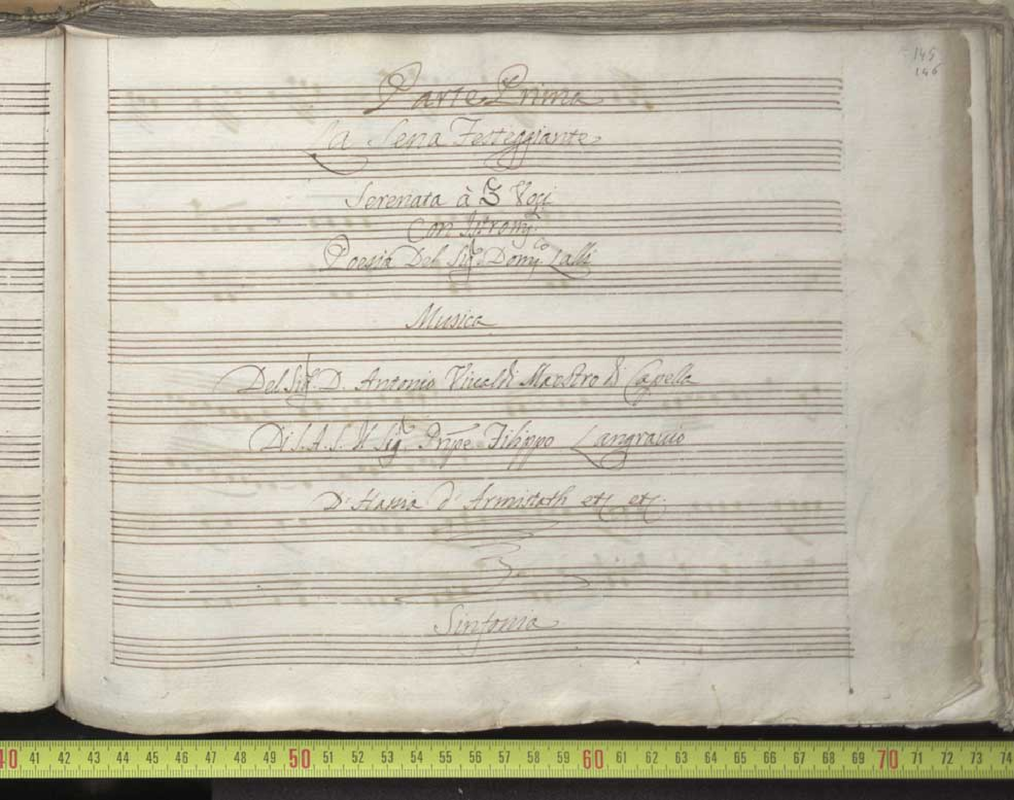 145
146
Parte Prima
La Sena Festeggiante
Serenata à 3 Voci
Con Istromti
Poesia Del Sigr Domco Lalli
Musica
Del Sigr D. Antonio Viualdi Maestro di Capella
Di S. A. S. Il Sigr Pnpe Filippo Langrauio
D' Hassia d' Armistath etc etc.
Sinfonia
40 41 42 43 44 45 46 47 48 49 50 51 52 53 54 55 56 57 58 59 60 61 62 63 64 65 66 67 68 69 70 71 72 73 74